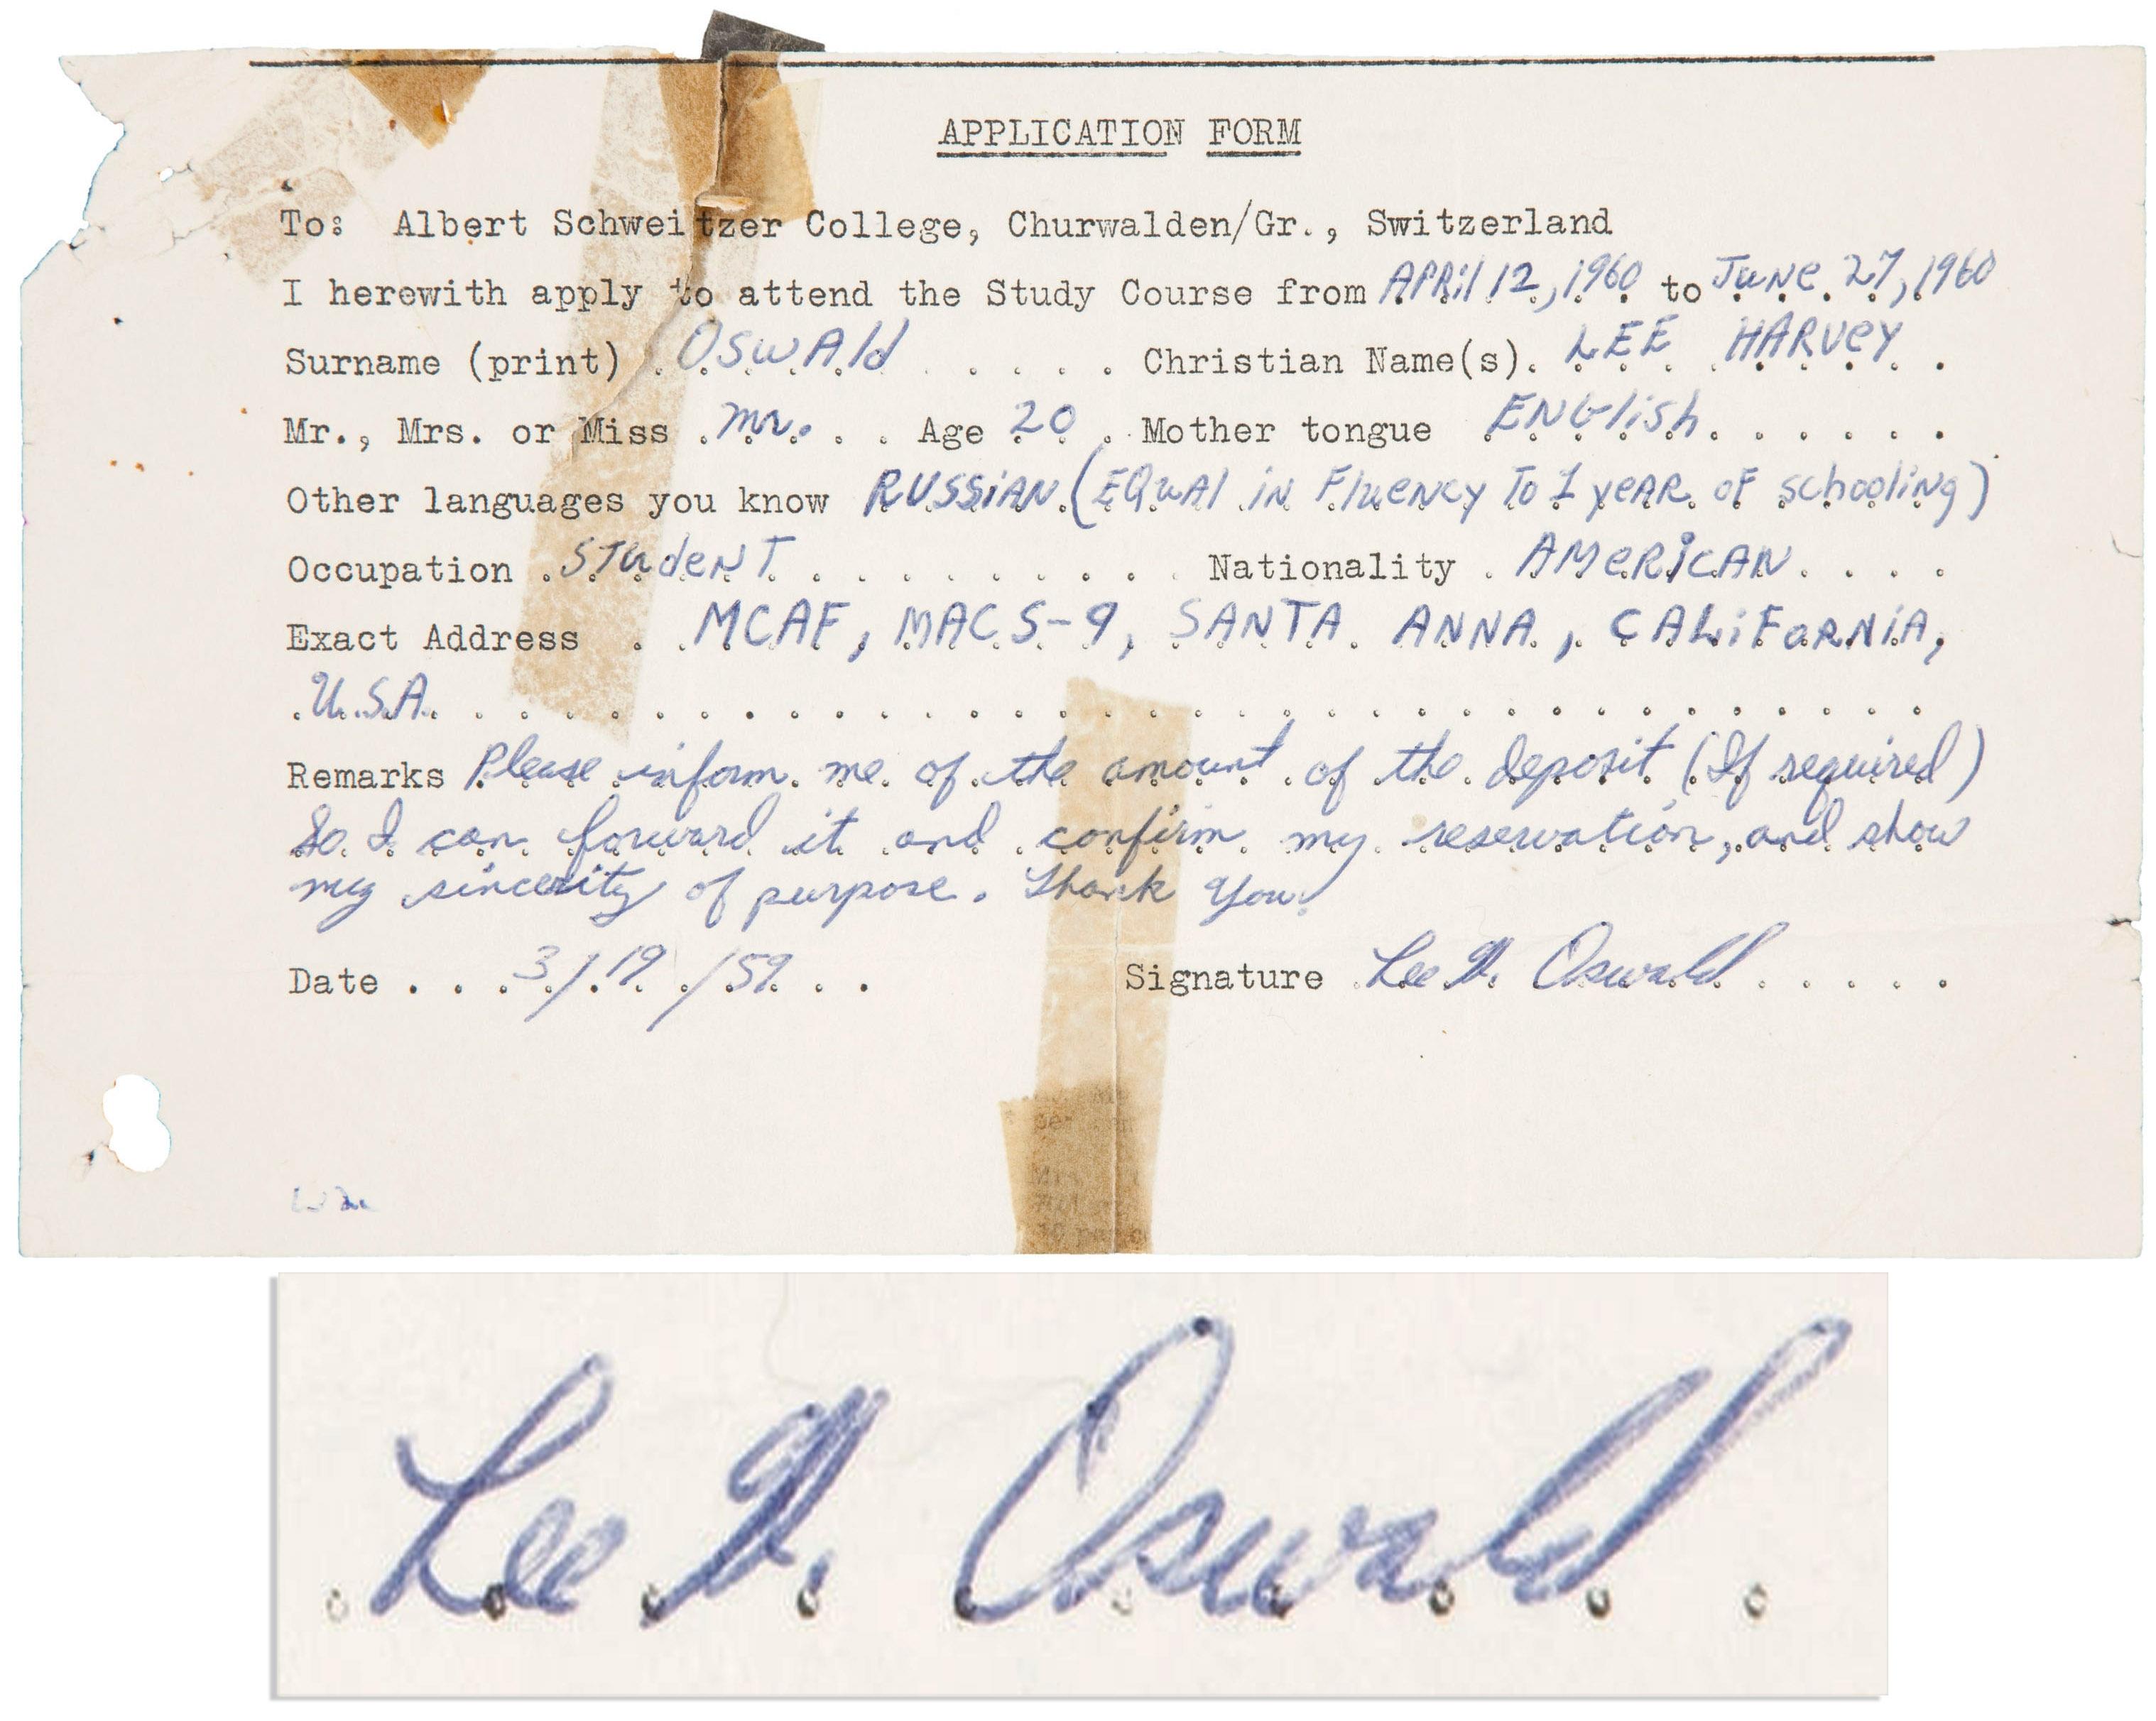 APPLICATION FORM
To: Albert Schweitzer College, Churwalden/Gr., Switzerland
I herewith apply to attend the Study Course from APRil 12, 1960 to JuNe 27, 1960
Surname (print) OSWAld Christian Name(s). LEE HARVeY
Mr., Mrs. or Miss Mr. Age 20 Mother tongue ENGlish
Other languages you know RUSSiAN (EQuAl iN FlueNCy To 1 yeAR of schooliNg)
Occupation STudeNT Nationality AMeRiCAN
Exact Address MCAF, MACS-9, SANTA ANNA, CALiFoRNiA,
U.S.A.
Remarks Please inform me of the amount of the deposit (If required)
So I can forward it and confirm my reservation, and show
my sincerity of purpose. Thank You.
Date 3/19/59 Signature Lee H. Oswald
Lee H. Oswald